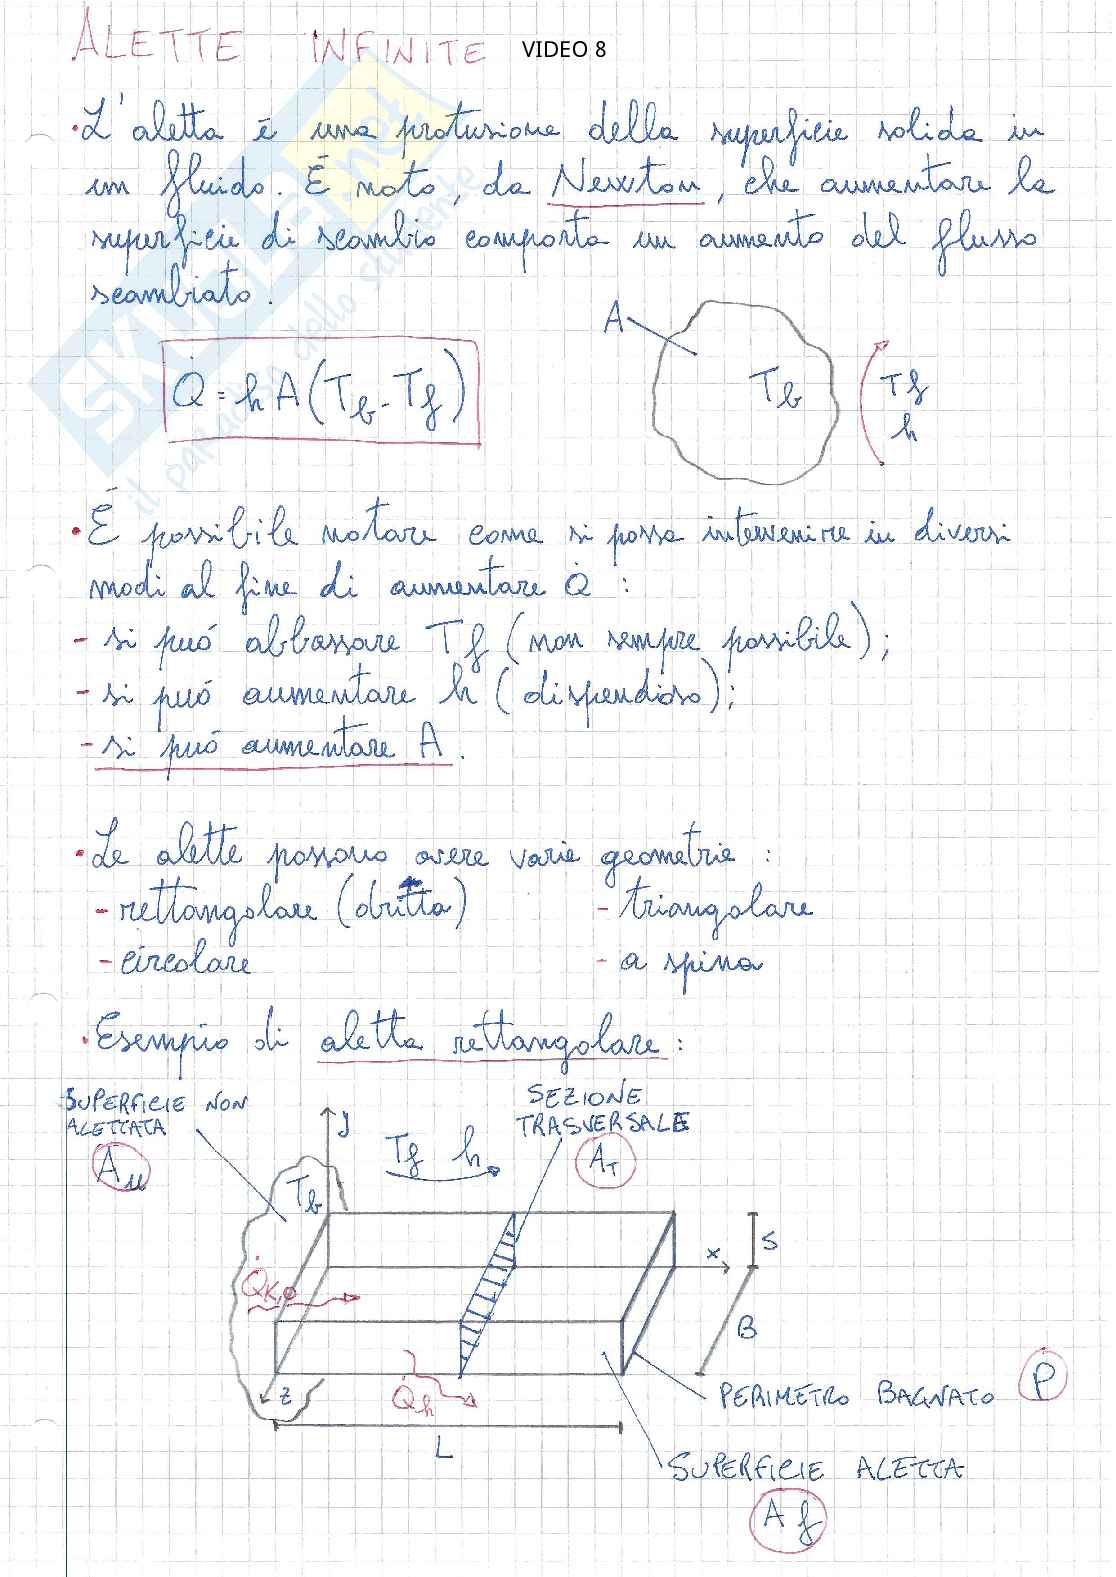 ALETTE INFINITE VIDEO 8
·L'aletta é una protusione della superficie solida in
un fluido. É noto, da Newton, che aumentare la
superficie di scambio comporta un aumento del flusso
scambiato.
A
Q̇ = h A (Tb - Tf)
Tb
Tf
h
·É possibile notare come si possa intervenire in diversi
modi al fine di aumentare Q̇ :
- si puó abbassare Tf (non sempre possibile);
- si puó aumentare h (dispendioso);
- si puó aumentare A.
·Le alette possono avere varie geometrie :
- rettangolare (dritta) - triangolare
- circolare - a spina
·Esempio di aletta rettangolare :
SUPERFICIE NON
ALETTATA
Au
SEZIONE
TRASVERSALE
AT
y
Tf h
Tb
x
S
Q̇K,0
B
z
Q̇h
L
PERIMETRO BAGNATO P
SUPERFICIE ALETTA
Af
SKUOLA.net
il paradiso dello studente